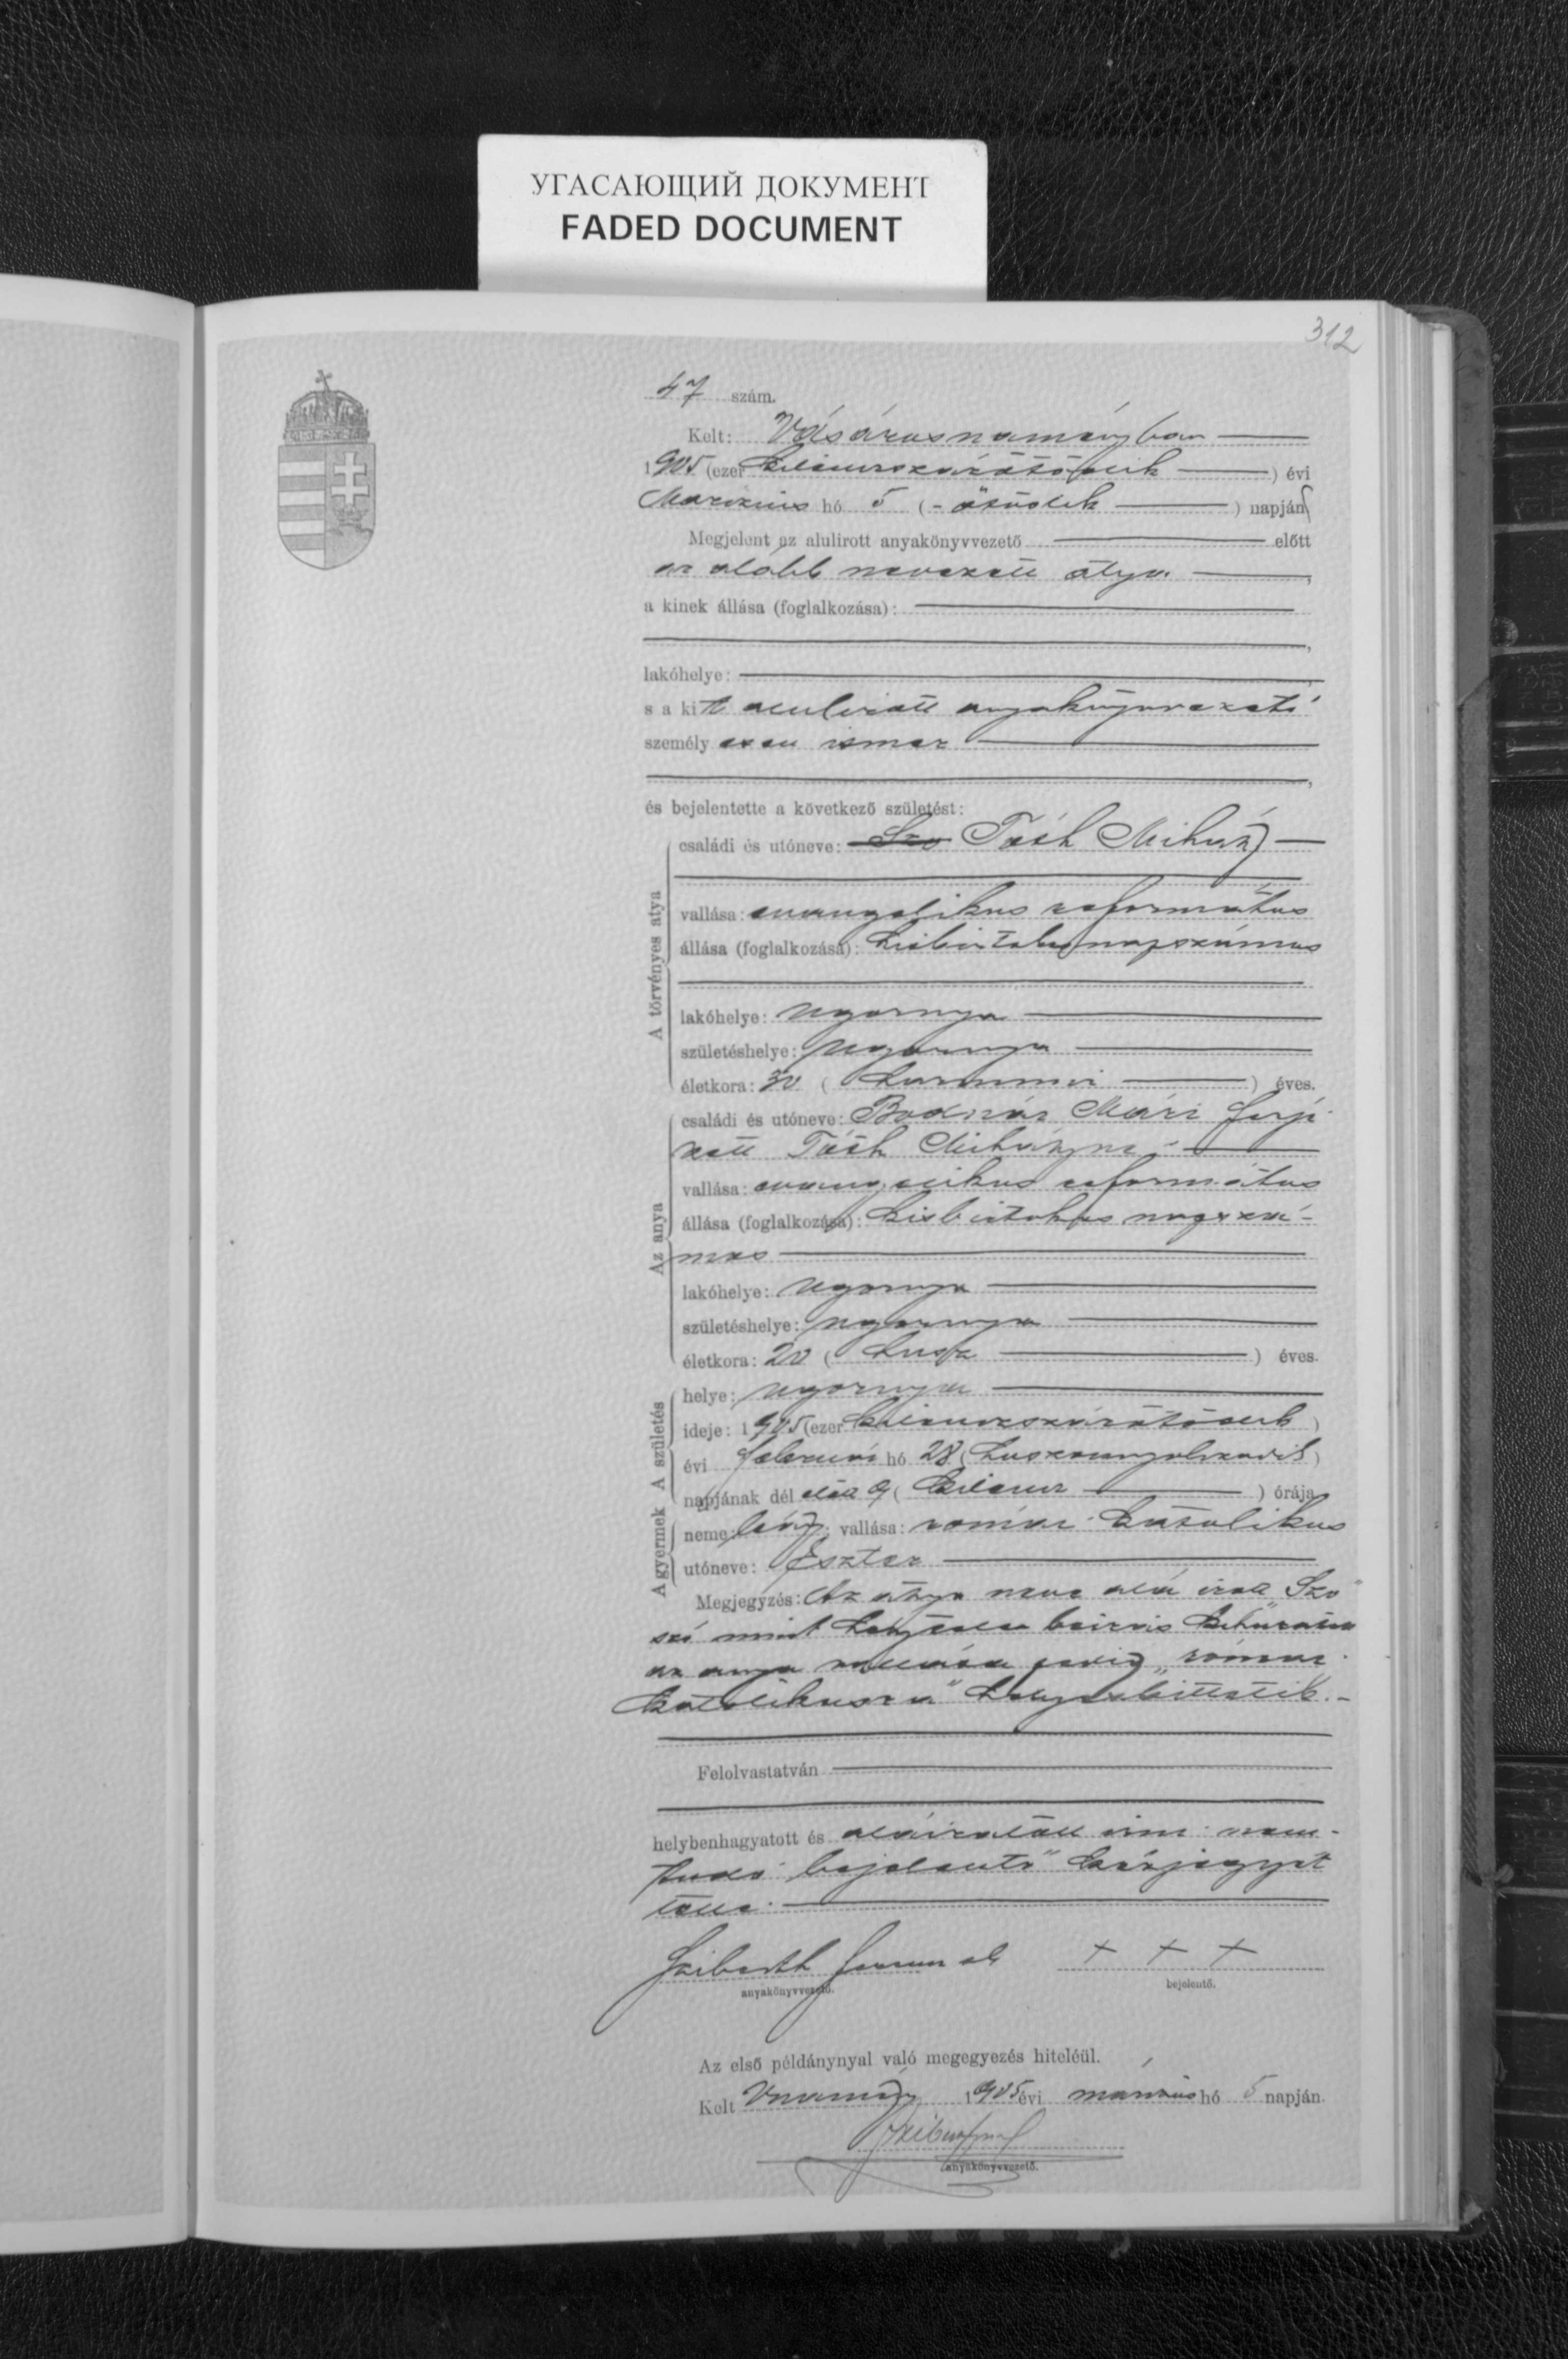 УГАСАЮЩИЙ ДОКУМЕНТ
FADED DOCUMENT
312
47 szám.
Kelt: Vásárosnaményban
1905 (ezer kilenczszázötödik) évi
Márczius hó 5 (ötödik) napján
Megjelent az alulirott anyakönyvvezető előtt
az alább nevezett atya,
a kinek állása (foglalkozása):
lakóhelye:
s a kit alulirott anyakönyvvezető
személyesen ismer
és bejelentette a következő születést:
A törvényes atya
családi és utóneve: Szo Tóth Mihály
vallása: evangelikus református
állása (foglalkozása): kisbirtokos napszámos
lakóhelye: Ugornya
születéshelye: Ugornya
életkora: 30 (harmincz) éves.
Az anya
családi és utóneve: Bodnár Mári férje-
zett Tóth Mihályné
vallása: evangelikus református
állása (foglalkozása): kisbirtokos napszá-
mos
lakóhelye: Ugornya
születéshelye: Ugornya
életkora: 20 (husz) éves.
A születés
helye: Ugornya
ideje: 1905 (ezer kilenczszázötödik)
évi február hó 28 (huszonnyolczadik)
napjának dél előtt 9 (kilencz) órája
A gyermek
neme: leány; vallása: római katolikus
utóneve: Eszter
Megjegyzés: Az atya neve alá irott "Szo"
szó mint helytelen beirás kihuzatott
az anya vallása pedig "római
katolikusra" helyesbittetik.-
Felolvastatván
helybenhagyatott és aláiratott irni nem
tudó bejelentő kézjegyét
tette.
anyakönyvvezető.
+ + +
bejelentő.
Az első példánynyal való megegyezés hiteléül.
Kelt Vnamény 1905 évi márczius hó 5 napján.
anyakönyvvezető.